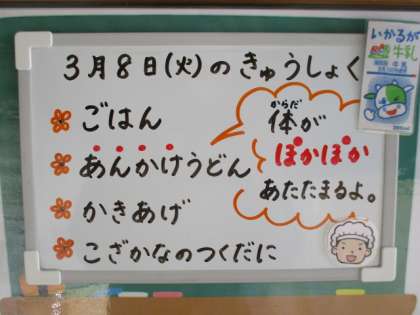 3月8日(火)のきゅうしょく
ごはん
あんかけうどん
かきあげ
こざかなのつくだに
からだ
体が
ぽかぽか
あたたまるよ。
いかるが
牛乳